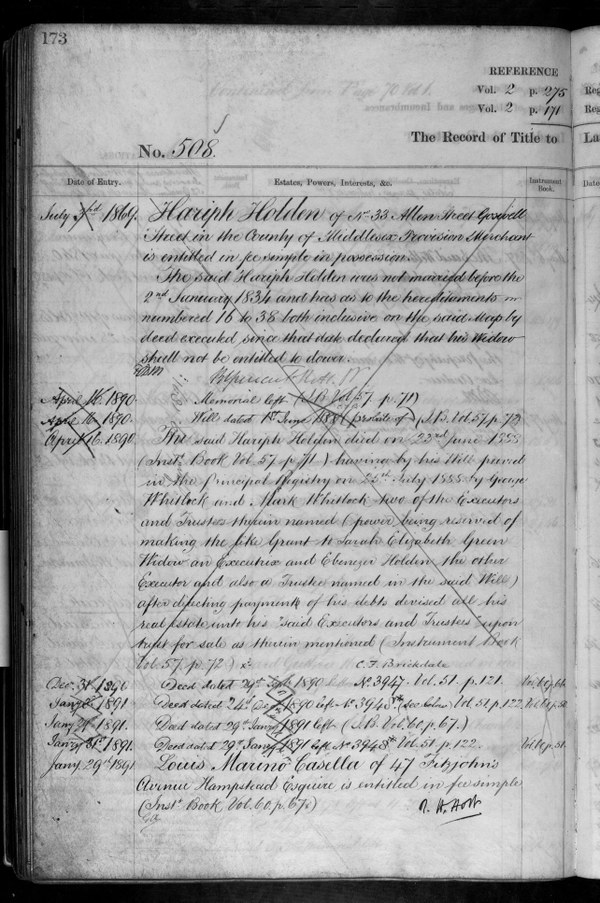 173
REFERENCE
Vol. 2 p. 275
Vol. 2 p. 171
The Record of Title to
La
No. 508.
Date of Entry.
Estates, Powers, Interests, &c.
Instrument
Book.
Date
July 3rd 1869.
Hariph Holden of No. 33 Allen Street Goswell
Street in the County of Middlesex Provision Merchant
is entitled in fee simple in possession.
The said Hariph Holden was not married before the
2nd January 1834 and has as to the hereditaments
numbered 16 to 38 both inclusive on the said Map by
deed executed since that date declared that his Widow
shall not be entitled to dower.
April 16. 1890. Memorial left (I.B. Vol 57. p. 71)
April 16. 1890. Will dated 1st June (probate of) (I.B. Vol. 57. p. 72)
April 16. 1890 The said Hariph Holden died on 22nd June 1888
(Inst. Book Vol. 57. p. 71) having by his Will proved
in the Principal Registry on July 1888 by George
Whitlock and Mark Whitlock two of the Executors
and Trustees therein named (power being reserved of
making the like Grant to Sarah Elizabeth Green
Widow an Executrix and Ebenezer Holden the other
Executor and also a Trustee named in the said Will)
after directing payment of his debts devised all his
real Estate unto his said Executors and Trustees upon
trust for sale as therein mentioned (Instrument Book
Vol. 57. p. 72)
C. F. Brickdale
Dec. 31. 1890 Deed dated 29th 1890 No. 3947. Vol. 51. p. 121.
Jany 1891 Deed dated 24th Dec 1890 left No. 3948 Vol. 51. p. 122.
Jany 1891. Deed dated 29th Jany 1891 left (I.B. Vol. 60. p. 67.)
Jany 31st 1891. Deed dated 29th Jany 1891 left No. 3948A Vol. 51. p. 122. Vol. 60. p. 51.
Jany 29th 1891 Louis Marino Casella of 47 Fitzjohn's
Avenue Hampstead Esquire is entitled in fee simple
(Inst. Book Vol. 60. p. 67.)
R. H. Holt